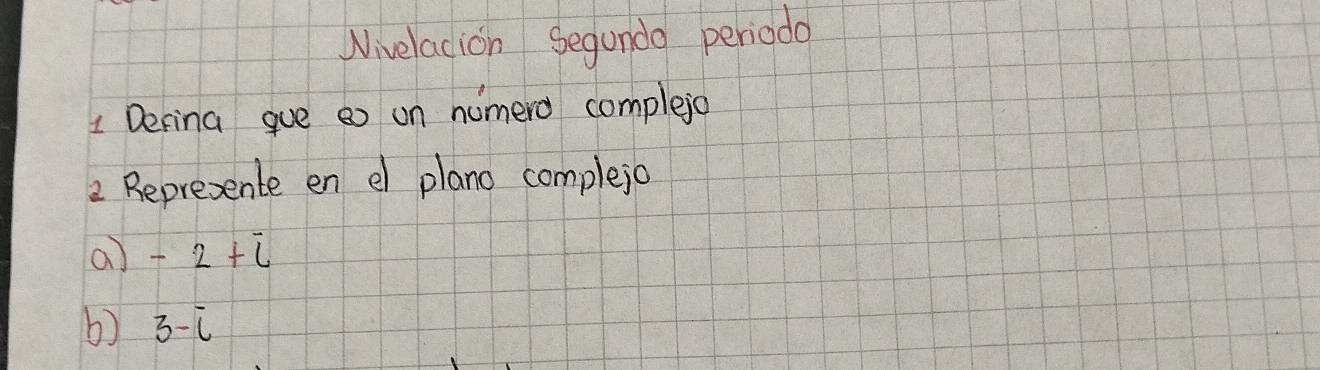 Nivelación Segundo periodo
1 Defina que es un número complejo
2 Represente en el plano complejo
a) - 2 + i
b) 3 - i